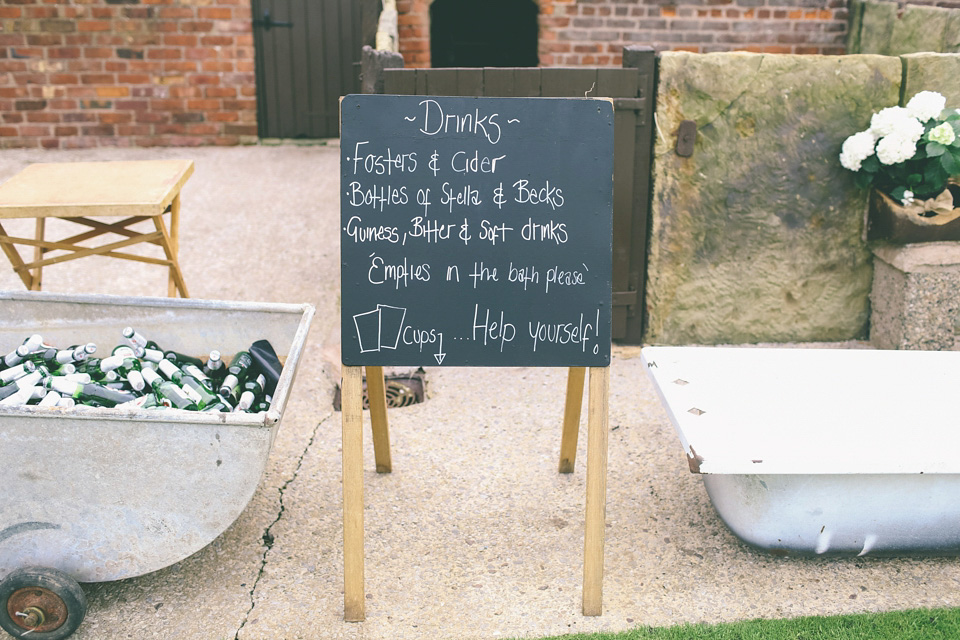 ~Drinks~
·Fosters & Cider
·Bottles of Stella & Becks
·Guiness, Bitter & Soft drinks
'Empties in the bath please'
cups ...Help yourself!